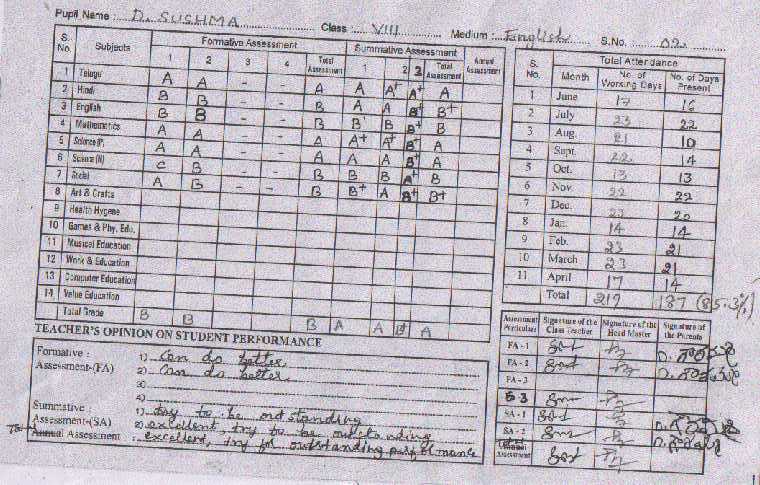 Pupil Name : D. SUSHMA Class : VIII Medium : English S.No. 02
S. No. Subjects Formative Assessment Summative Assessment Annual Assessment
1 2 3 4 Total Assessment 1 2 3 Total Assessment
1 Telugu A A - - A A A+ A+ A
2 Hindi B B - - B A A B+ B+
3 English B B - - B B A B+ B
4 Mathematics A A - - A A+ A+ B+ A
5 Science (P) A A - - A A A B+ A
6 Science (N) C B - - B B B A+ B
7 Social A B - - B B+ A B+ B+
8 Art & Crafts
9 Health Hygene
10 Games & Phy. Edu.
11 Musical Education
12 Work & Education
13 Computer Education
14 Value Education
Total Grade B B B A A B+ A
S. No. Total Attendance
Month No. of Working Days No. of Days Present
1 June 17 16
2 July 23 22
3 Aug. 21 10
4 Sept. 22 14
5 Oct. 13 13
6 Nov. 22 22
7 Dec. 20
8 Jan. 14 14
9 Feb. 23 21
10 March 23 21
11 April 17 14
Total 219 187 (85.3%)
TEACHER'S OPINION ON STUDENT PERFORMANCE
Formative : 1) Can do better.
Assessment-(FA) 2) Can do better.
3)
4)
Summative : 1) try to be outstanding
Assessment-(SA) 2) excellent try to be outstanding
Annual Assessment excellent, try for outstanding performance
Assessment Particulars Signature of the Class Teacher Signature of the Head Master Signature of the Parents
FA - 1
FA - 2
FA - 3
S-3
SA - 1
SA - 2
Assessment